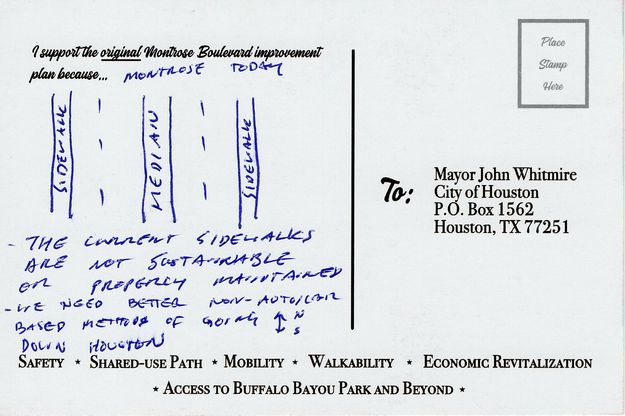 I support the original Montrose Boulevard improvement
plan because... MONTROSE TODAY
SIDEWALK
MEDIAN
SIDEWALK
- THE CURRENT SIDEWALKS
ARE NOT SUSTAINABLE
OR PROPERLY MAINTAINED
- WE NEED BETTER NON-AUTO/CAR
BASED METHODS OF GOING ↕ N S
DOWN HOUSTON
Place
Stamp
Here
To:
Mayor John Whitmire
City of Houston
P.O. Box 1562
Houston, TX 77251
SAFETY ⋆ SHARED-USE PATH ⋆ MOBILITY ⋆ WALKABILITY ⋆ ECONOMIC REVITALIZATION
⋆ ACCESS TO BUFFALO BAYOU PARK AND BEYOND ⋆